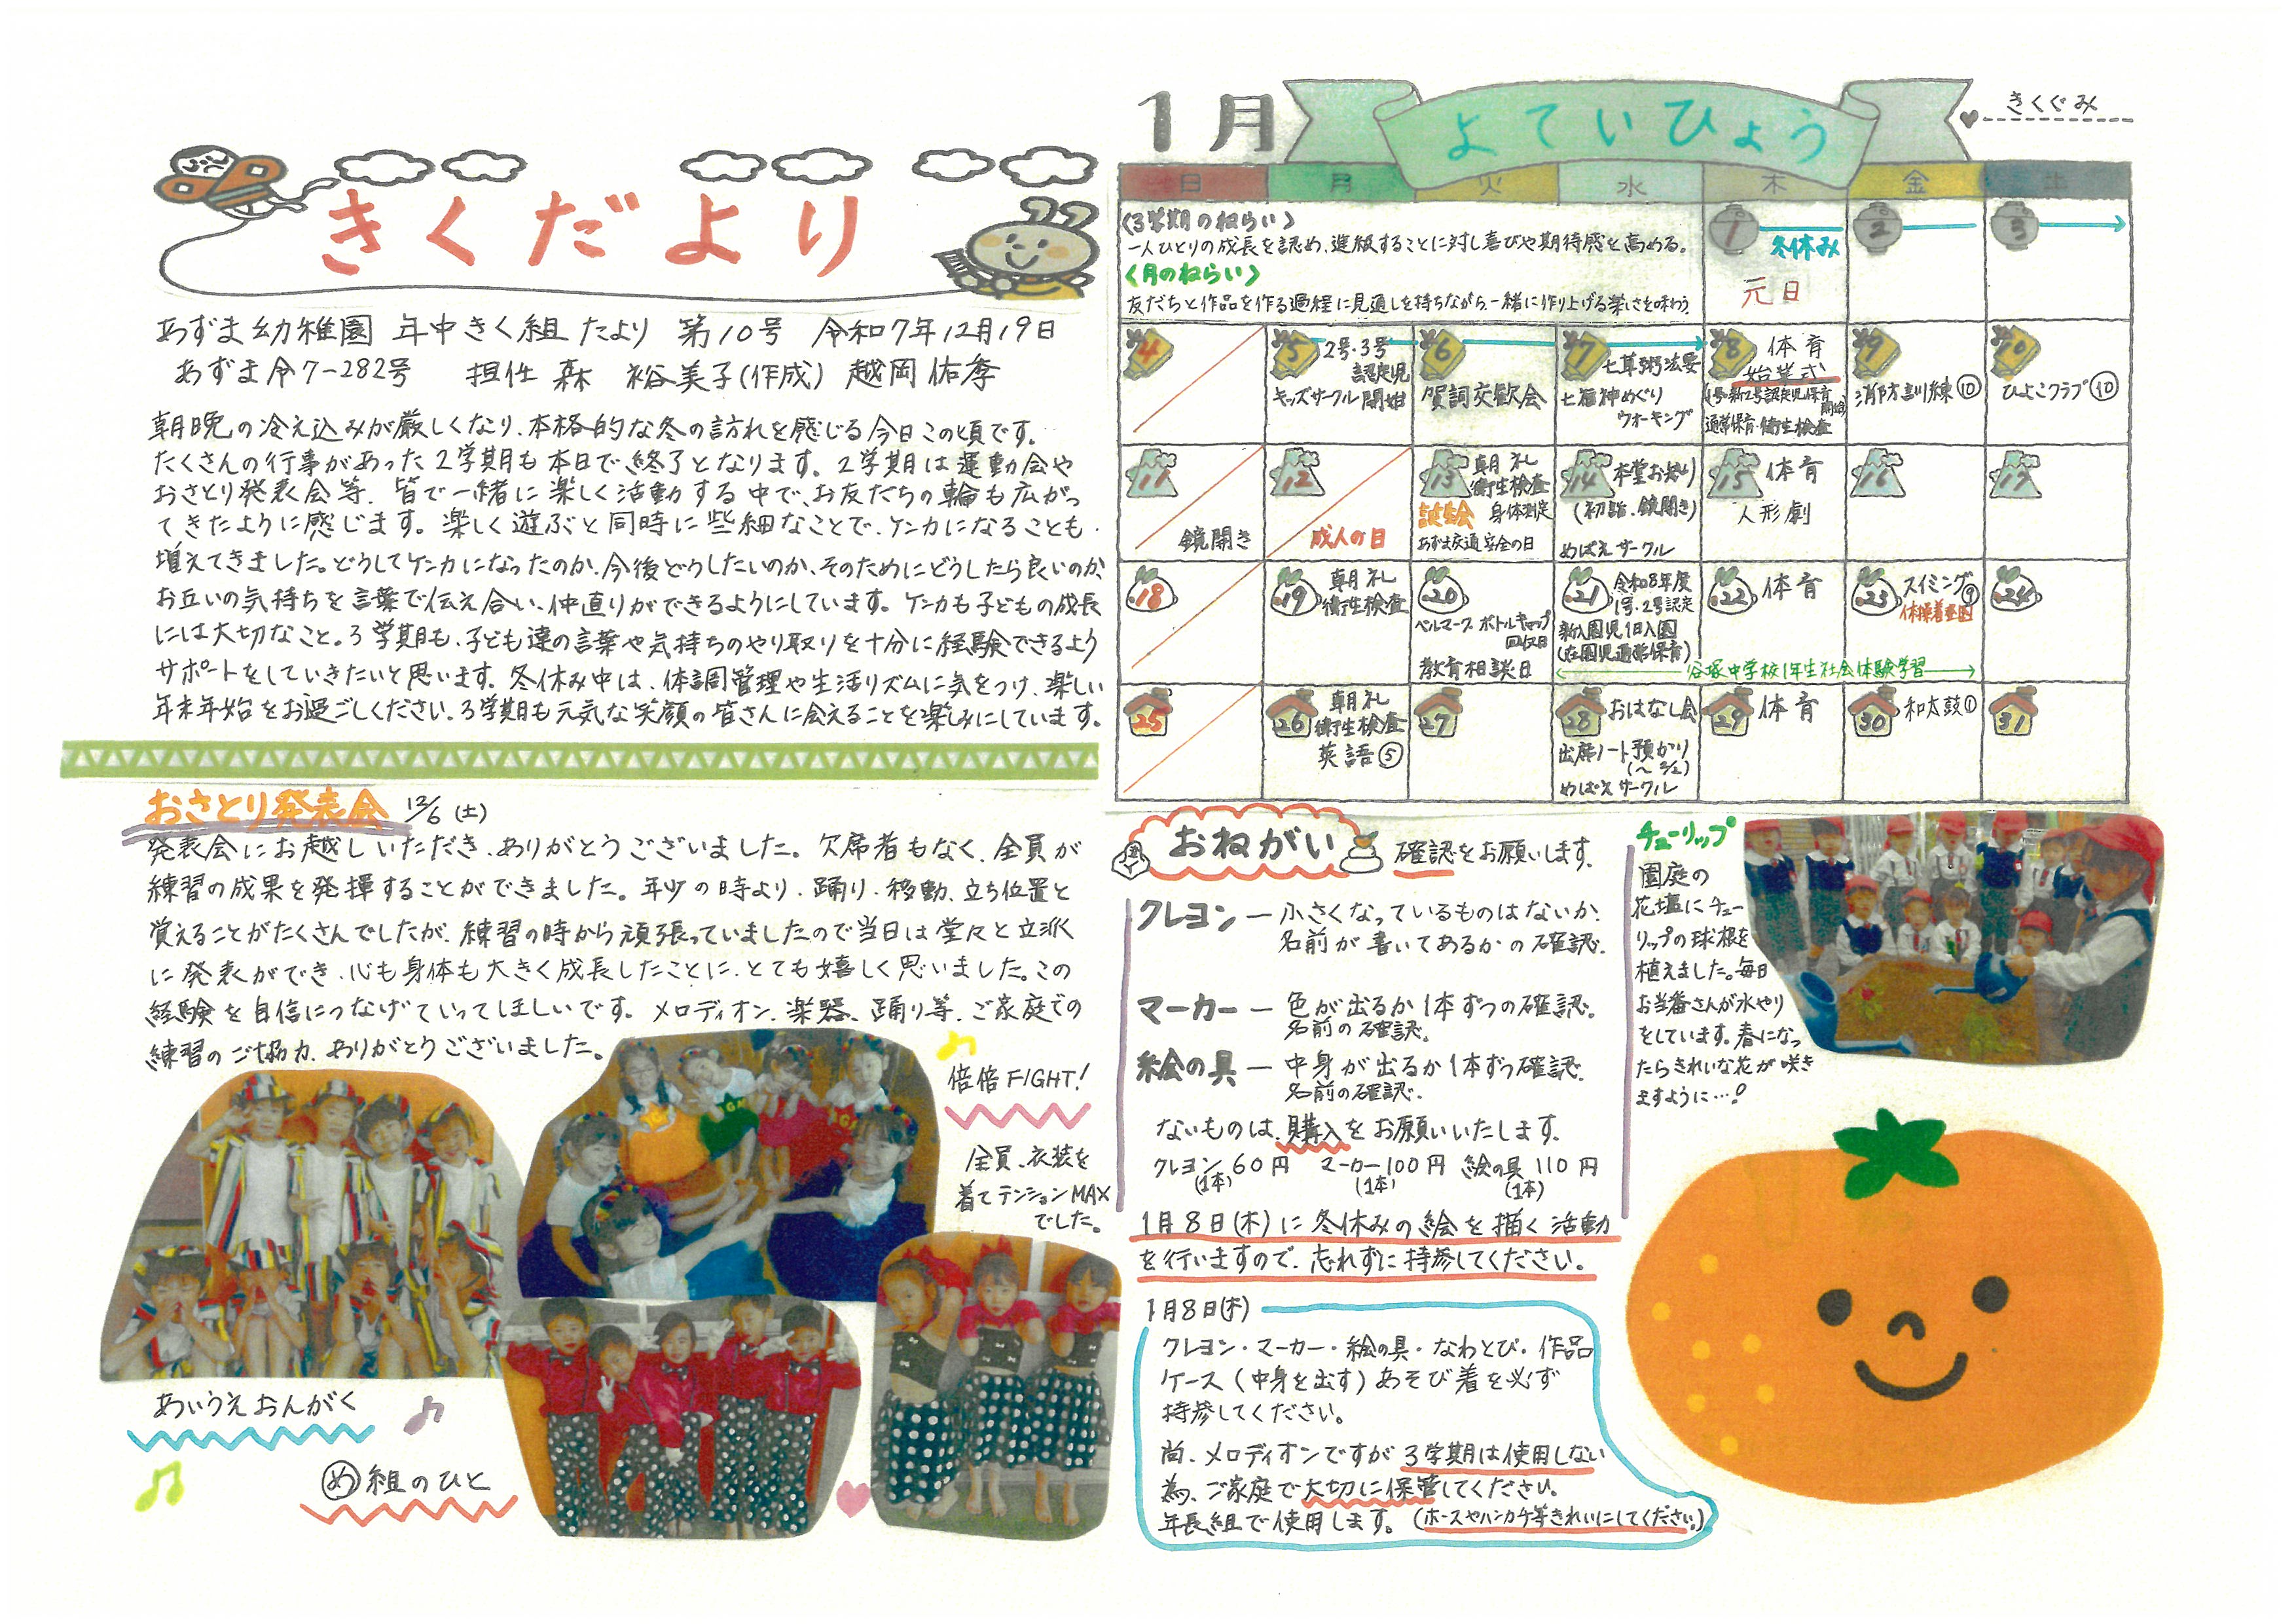 きくだより
あずま幼稚園 年中きく組 たより 第10号 令和7年12月19日
あずま令7-282号 担任 森 裕美子(作成) 越岡 佑季
朝晩の冷え込みが厳しくなり、本格的な冬の訪れを感じる今日この頃です。
たくさんの行事があった2学期も本日で終了となります。2学期は運動会や
おさとり発表会等、皆で一緒に楽しく活動する中で、お友だちの輪も広がっ
てきたように感じます。楽しく遊ぶと同時に些細なことで、ケンカになることも
増えてきました。どうしてケンカになったのか、今後どうしたいのか、そのためにどうしたら良いのか、
お互いの気持ちを言葉で伝え合い、仲直りができるようにしています。ケンカも子どもの成長
には大切なこと。3学期も、子ども達の言葉や気持ちのやり取りを十分に経験できるよう
サポートをしていきたいと思います。冬休み中は、体調管理や生活リズムに気をつけ、楽しい
年末年始をお過ごしください。3学期も元気な笑顔の皆さんに会えることを楽しみにしています。
おさとり発表会 12/6(土)
発表会にお越しいただき、ありがとうございました。欠席者もなく、全員が
練習の成果を発揮することができました。年少の時より、踊り、移動、立ち位置と
覚えることがたくさんでしたが、練習の時から頑張っていましたので当日は堂々と立派
に発表ができ、心も身体も大きく成長したことに、とても嬉しく思いました。この
経験を自信につなげていってほしいです。メロディオン、楽器、踊り等、ご家庭での
練習のご協力、ありがとうございました。
倍倍FIGHT!
全員、衣装を
着てテンションMAX
でした。
あいうえおんがく
め組のひと
1月 よていひょう
きくぐみ
日 月 火 水 木 金 土
〈3学期のねらい〉
一人ひとりの成長を認め、進級することに対し喜びや期待感を高める。
〈月のねらい〉
友だちと作品を作る過程に見通しを持ちながら、一緒に作り上げる楽しさを味わう。
1 冬休み
元日
2
3
4
5 2号・3号
認定児
キッズサークル開始
6
賀詞交歓会
7 七草粥法要
七福神めぐり
ウォーキング
8 体育
始業式
(1号・新2号認定児保育
開始)
通常保育・衛生検査
9
消防訓練⑩
10
ひよこクラブ⑩
11
鏡開き
12
成人の日
13 朝礼
衛生検査
誕生会 身体測定
あずま交通安全の日
14 本堂お参り
(初詣、鏡開き)
めばえサークル
15 体育
人形劇
16
17
18
19 朝礼
衛生検査
20
ベルマーク ボトルキャップ
回収日
教育相談日
21 令和8年度
1号・2号認定
新入園児1日入園
(在園児通常保育)
谷塚中学校1年生社会体験学習
22 体育
23 スイミング⑨
体操着登園
24
25
26 朝礼
衛生検査
英語⑤
27
28 おはなし会
出席ノート預かり
(~2/2)
めばえサークル
29 体育
30 和太鼓①
31
おねがい 確認をお願いします。
クレヨン ー 小さくなっているものはないか、
名前が書いてあるかの確認。
マーカー ー 色が出るか1本ずつの確認。
名前の確認。
絵の具 ー 中身が出るか1本ずつ確認。
名前の確認。
ないものは、購入をお願いいたします。
クレヨン 60円 マーカー100円 絵の具110円
(1本) (1本) (1本)
1月8日(木)に冬休みの絵を描く活動
を行いますので、忘れずに持参してください。
1月8日(木)
クレヨン・マーカー・絵の具・なわとび・作品
ケース(中身を出す)あそび着を必ず
持参してください。
尚、メロディオンですが3学期は使用しない
為、ご家庭で大切に保管してください。
年長組で使用します。(ホースやハンカチ等きれいにしてください。)
チューリップ
園庭の
花壇にチュー
リップの球根を
植えました。毎日
お当番さんが水やり
をしています。春になっ
たらきれいな花が咲き
ますように…!